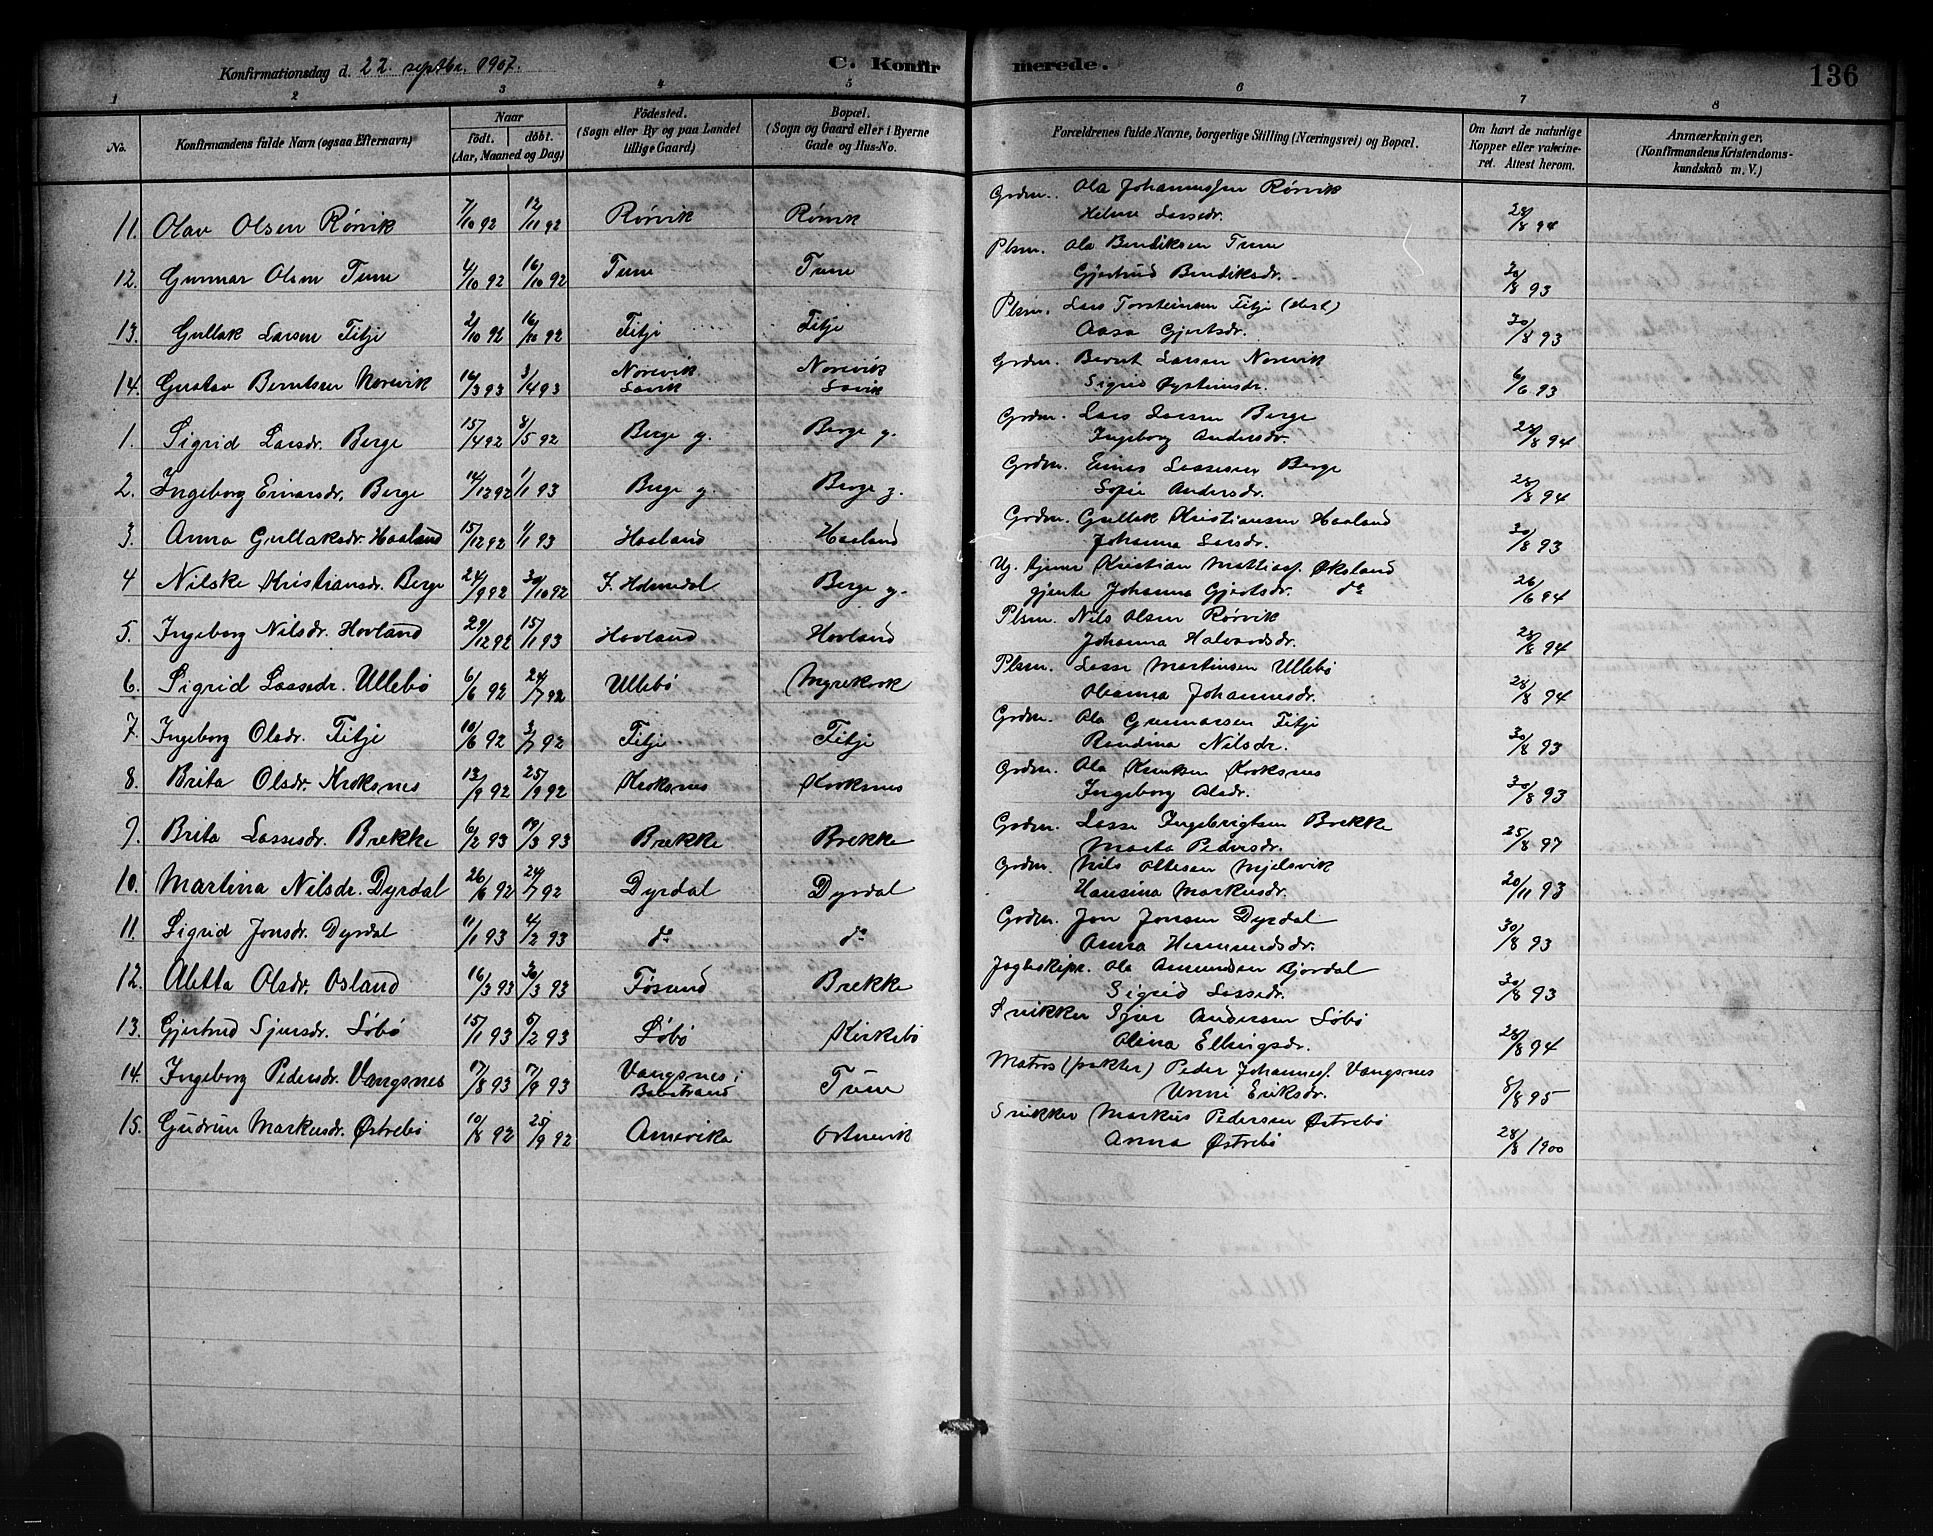 Konfirmationsdag d. 22 septbr. 1907.
C. Konfirmerede.
136
1 2 3 4 5 6 7 8
No.
Konfirmandens fulde Navn (ogsaa Efternavn)
Naar
födt. döbt.
(Aar, Maaned og Dag)
Födested.
(Sogn eller By og paa Landet tillige Gaard)
Bopæl.
(Sogn og Gaard eller i Byerne Gade og Hus-No.
Forældrenes fulde Navne, borgerlige Stilling (Næringsvei) og Bopæl.
Om havt de naturlige Kopper eller vakcineret. Attest herom.
Anmærkninger,
(Konfirmandens Kristendomskundskab m. V.)
11. Olav Olsen Rörvik 7/10 92 12/11 92 Rörvik Rörvik Grdm. Ola Johannessen Rörvik
Helene Larsdr. 28/8 94
12. Gunnar Olsen Tune 4/10 92 16/10 92 Tune Tune Plsm. Ola Bendiksen Tune
Gjertrud Bendiksdr. 30/8 93
13. Gullak Larsen Fitje 2/10 92 16/10 92 Fitje Fitje Plsm. Lars Torsteinsen Fitje (död)
Aasa Gjertsdr. 30/8 93
14. Gustav Berntsen Norevik 16/3 93 3/4 93 Norevik Lavik Norevik Lavik Grdm. Bernt Larsen Norevik
Sigrid Øysteinsdr. 6/6 93
1. Sigrid Larsdr. Berge 15/4 92 8/5 92 Berge y. Berge y. Grdm. Lars Larsen Berge
Ingeborg Andersdr. 28/8 94
2. Ingeborg Einarsdr. Berge 14/12 92 1/1 93 Berge y. Berge y. Grdm. Einar Lassesen Berge
Sofie Andersdr. 28/8 94
3. Anna Gullaksdr. Haaland 15/12 92 1/1 93 Haaland Haaland Grdm. Gullak Kristiansen Haaland
Johanna Larsdr. 30/8 93
4 Nilske Kristiansdr. Berge 24/9 92 30/10 92 I. Holmedal Berge y. Ug. tjener Kristian Mattiasf. Øksland
gjente Johanna Gjertsdr. do 26/6 94
5. Ingeborg Nilsdr. Hovland 29/12 92 15/1 93 Hovland Hovland Plsm. Nils Olsen Rörvik
Johanna Halvardsdr. 28/8 94
6. Sigrid Lassedr. Ullebö 6/6 92 24/7 92 Ullebö Myrekvok Plsm. Lasse Martinsen Ullebö
Oleanna Johannesdr. 28/8 94
7. Ingeborg Olsdr. Fitje 10/6 92 3/7 92 Fitje Fitje Grdm. Ola Gunnarsen Fitje
Rendina Nilsdr. 30/8 93
8. Brita Olsdr. Kroksnes 13/9 92 25/9 92 Kroksnes Kroksnes Grdm. Ola Knutsen Kroksnes
Ingeborg Olsdr. 30/8 93
9. Brita Lassesdr. Brekke 6/2 93 19/3 93 Brekke Brekke Grdm. Lasse Ingebrigtsen Brekke
Marta Pedersdr. 25/8 97
10. Martina Nilsdr. Dyrdal 26/6 92 24/7 92 Dyrdal Dyrdal Grdm. Nils Ottesen Mjelsvik
Hansina Markusdr. 20/11 93
11. Sigrid Jonsdr. Dyrdal 11/1 93 4/2 93 do do Grdm. Jon Jonsen Dyrdal
Anna Hermundsdr. 30/8 93
12. Aletta Olsdr. Osland 16/3 93 30/3 93 Fosund Brekke Jagteskipr. Ola Amundsen Bjordal
Sigrid Lassedr. 30/8 93
13. Gjertrud Sjursdr. Söbö 15/1 93 5/2 93 Söbö Kirkebö Snikker Sjur Andersen Söbö
Olina Ellingsdr. 28/8 94
14. Ingeborg Pedersdr. Vangsnes 17/8 93 17/9 93 Vangsnes i Balestrand Tune Matros (pakter) Peder Johannesf. Vangsnes
Unni Eriksdr. 8/8 95
15. Gudrun Markusdr. Østrebö 10/8 92 25/9 92 Amerika Ortnevik Snikker Markus Pedersen Østrebö
Anna Østrebö 28/8 1900